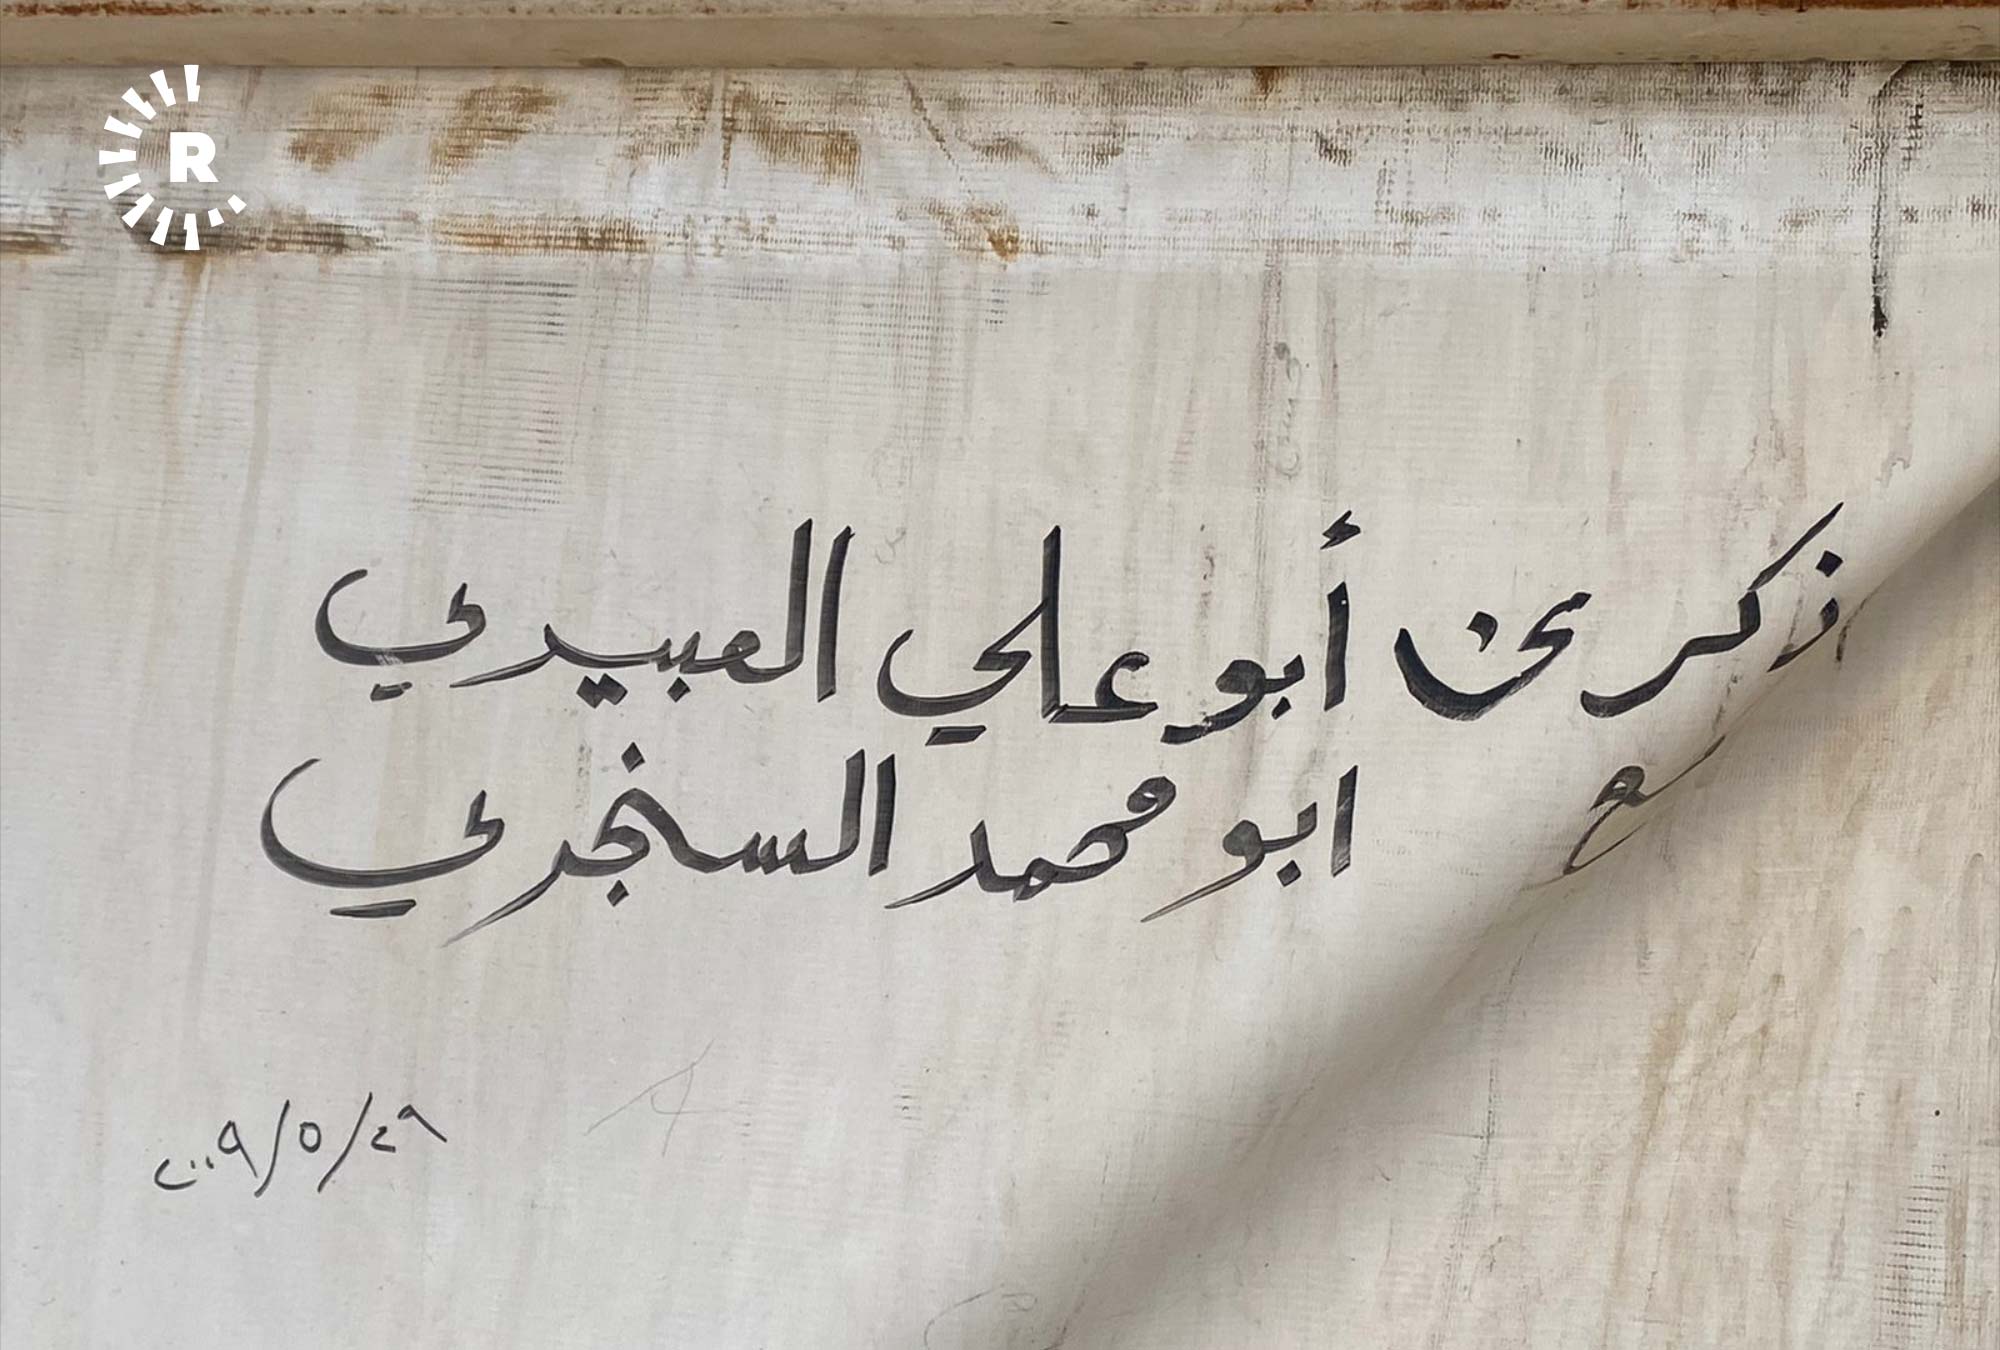 R
ذكرى أبو علي العبيدي
مع ابو محمد السنجري
٢٠٠٩/٥/٢٩